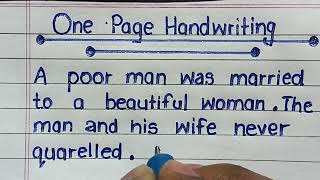 One Page Handwriting
A poor man was married
to a beautiful woman. The
man and his wife never
quarelled.